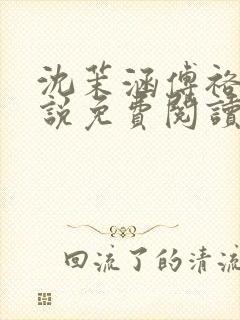 沈茉涵傅袼
說免費閱讀
回流了的清流